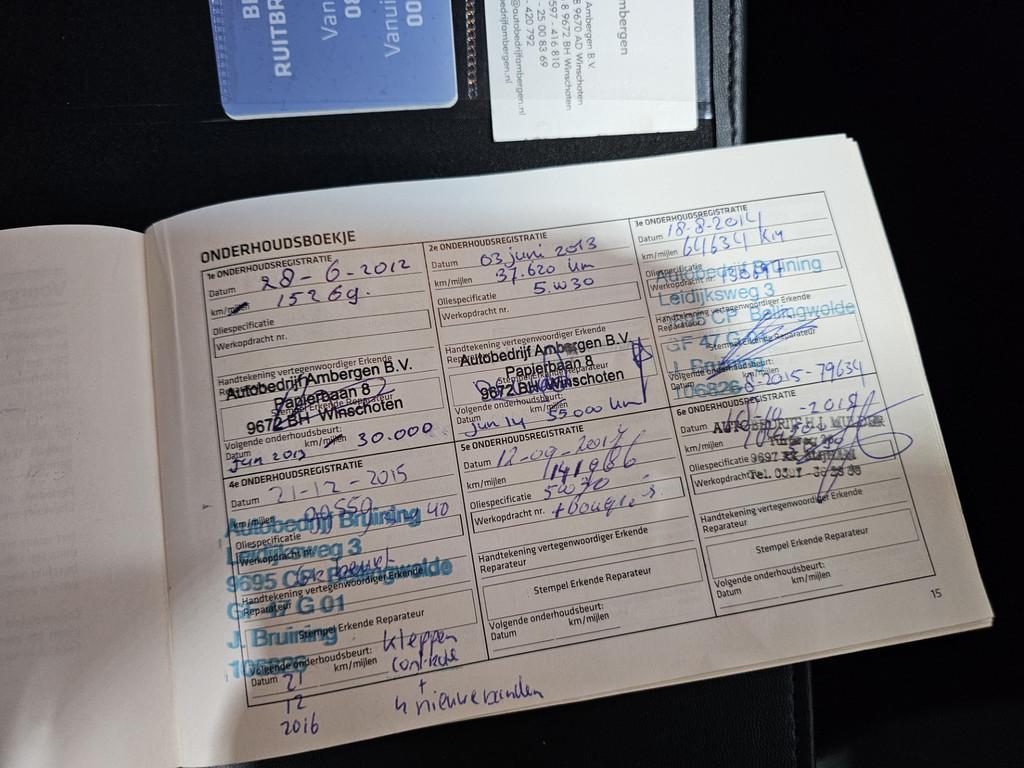 RUITBR
Vanui
Ambergen B.V.
8 9670 AD Winschoten
8 9672 BH Winschoten
597 - 416 810
- 25 00 83 69
- 420 792
@autobedrijfambergen.nl
bedrijfambergen.nl
ONDERHOUDSBOEKJE
1e ONDERHOUDSREGISTRATIE
Datum 28-6-2012
km/mijlen
Oliespecificatie
Werkopdracht nr.
Handtekening vertegenwoordiger Erkende
Autobedrijf Ambergen B.V.
Papierbaan 8
Stempel Erkende Reparateur
9672 BH Winschoten
Volgende onderhoudsbeurt:
Jun 2013 km/mijlen 30.000
2e ONDERHOUDSREGISTRATIE
Datum 03 juni 2013
km/mijlen 37.620 km
Oliespecificatie 5.W30
Werkopdracht nr.
Handtekening vertegenwoordiger Erkende
Autobedrijf Ambergen B.V.
Papierbaan 8
9672 BH Winschoten
Volgende onderhoudsbeurt:
Datum km/mijlen
Jun 14 55.000 km
3e ONDERHOUDSREGISTRATIE
Datum 18-8-2014
km/mijlen 64634 km
Oliespecificatie
Werkopdracht nr.
Autobedrijf Bruining
Leidijksweg 3
Handtekening vertegenwoordiger Erkende
Stempel Erkende Reparateur
Volgende onderhoudsbeurt:
Datum 8-2015-79634
106826
4e ONDERHOUDSREGISTRATIE
Datum 21-12-2015
km/mijlen
Autobedrijf Bruining
Oliespecificatie
Leidijksweg 3
Werkopdracht nr.
Handtekening vertegenwoordiger Erkende
Reparateur
G 01
Stempel Erkende Reparateur
J. Bruining
Volgende onderhoudsbeurt:
km/mijlen
Datum 21
12
2016
kleppen
controle
+
4 nieuwe banden
5e ONDERHOUDSREGISTRATIE
Datum 12-09-2017
km/mijlen 141986
Oliespecificatie 5W30
Werkopdracht nr. + bougie's
Handtekening vertegenwoordiger Erkende
Reparateur
Stempel Erkende Reparateur
Volgende onderhoudsbeurt:
Datum km/mijlen
6e ONDERHOUDSREGISTRATIE
Datum
km/mijlen
Oliespecificatie
Handtekening vertegenwoordiger Erkende
Reparateur
Stempel Erkende Reparateur
Volgende onderhoudsbeurt:
Datum km/mijlen
15